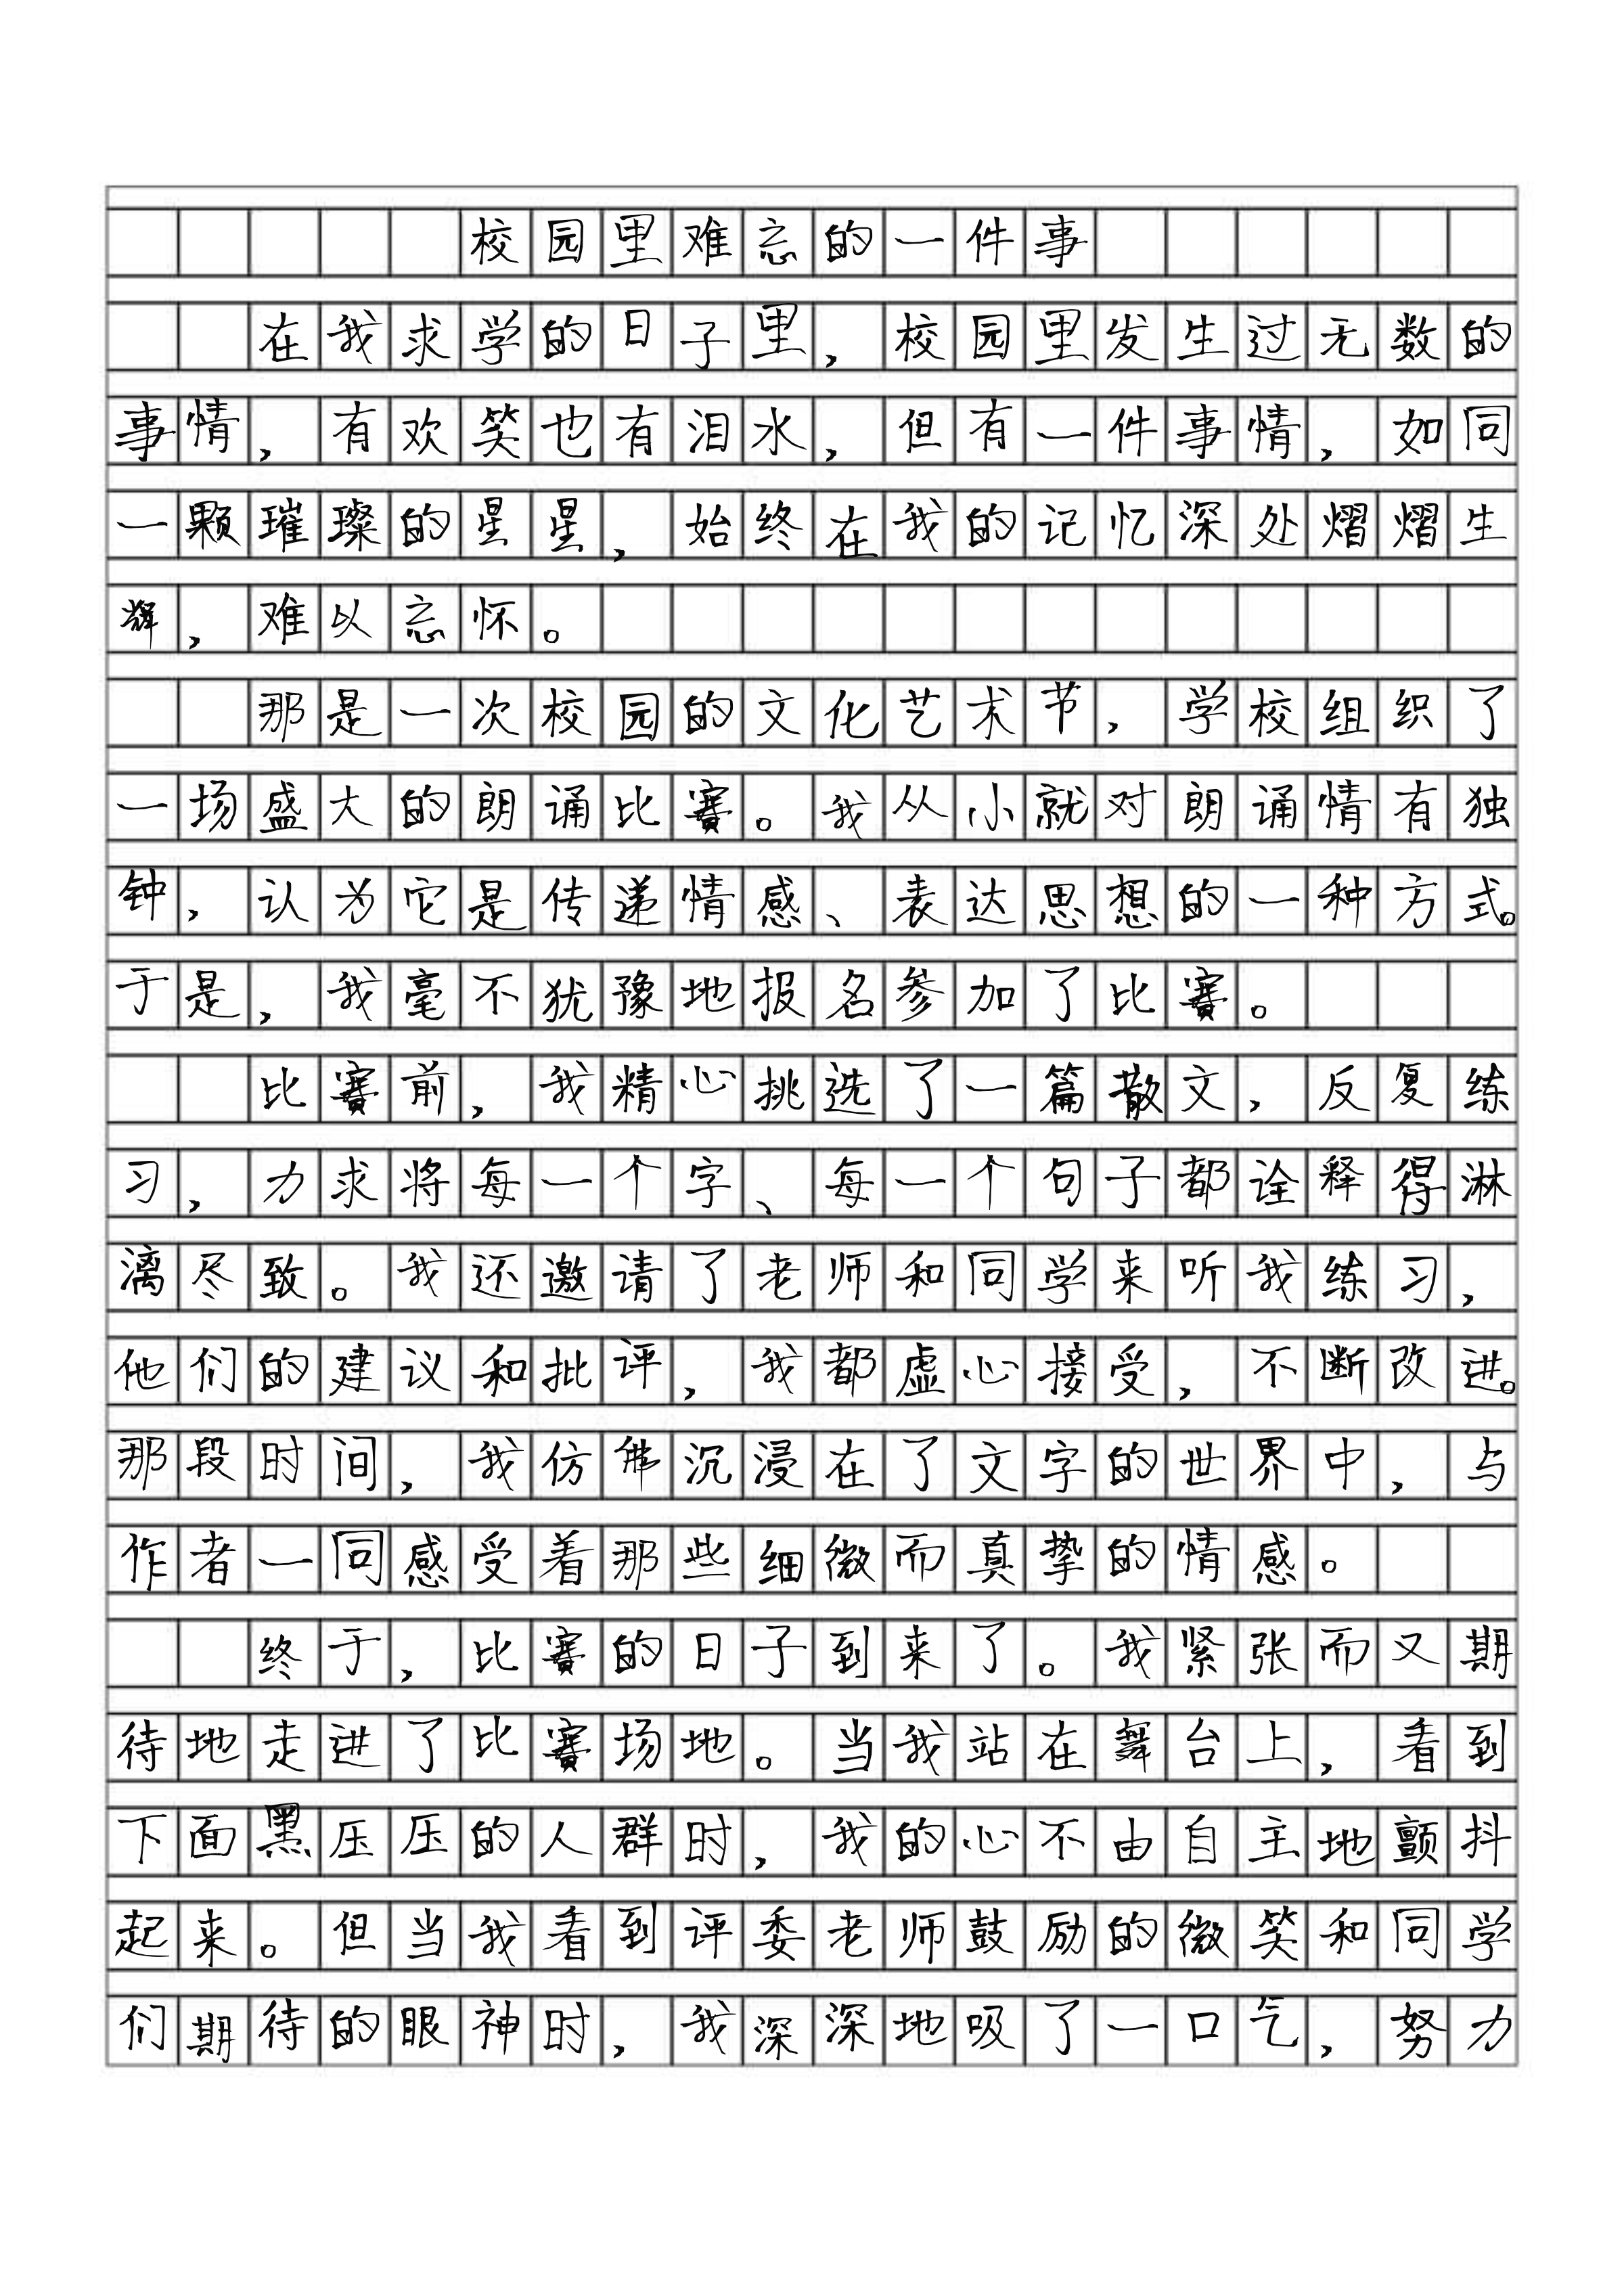 校园里难忘的一件事
在我求学的日子里，校园里发生过无数的
事情，有欢笑也有泪水，但有一件事情，如同
一颗璀璨的星星，始终在我的记忆深处熠熠生
辉，难以忘怀。
那是一次校园的文化艺术节，学校组织了
一场盛大的朗诵比赛。我从小就对朗诵情有独
钟，认为它是传递情感、表达思想的一种方式。
于是，我毫不犹豫地报名参加了比赛。
比赛前，我精心挑选了一篇散文，反复练
习，力求将每一个字、每一个句子都诠释得淋
漓尽致。我还邀请了老师和同学来听我练习，
他们的建议和批评，我都虚心接受，不断改进。
那段时间，我仿佛沉浸在了文字的世界中，与
作者一同感受着那些细微而真挚的情感。
终于，比赛的日子到来了。我紧张而又期
待地走进了比赛场地。当我站在舞台上，看到
下面黑压压的人群时，我的心不由自主地颤抖
起来。但当我看到评委老师鼓励的微笑和同学
们期待的眼神时，我深深地吸了一口气，努力